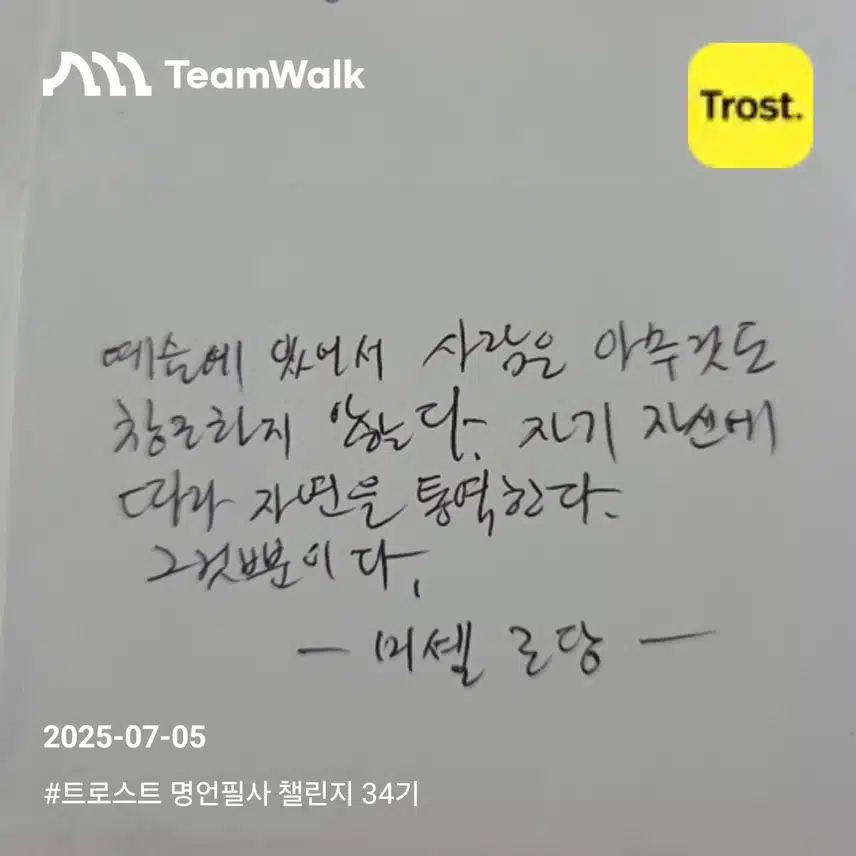 TeamWalk
Trost.
예슬에 있어서 사람은 아무것도
창조하지 않는다. 자기 자신에
따라 자연을 통역한다.
그것뿐이다.
— 미셸 로당 —
2025-07-05
#트로스트 명언필사 챌린지 34기